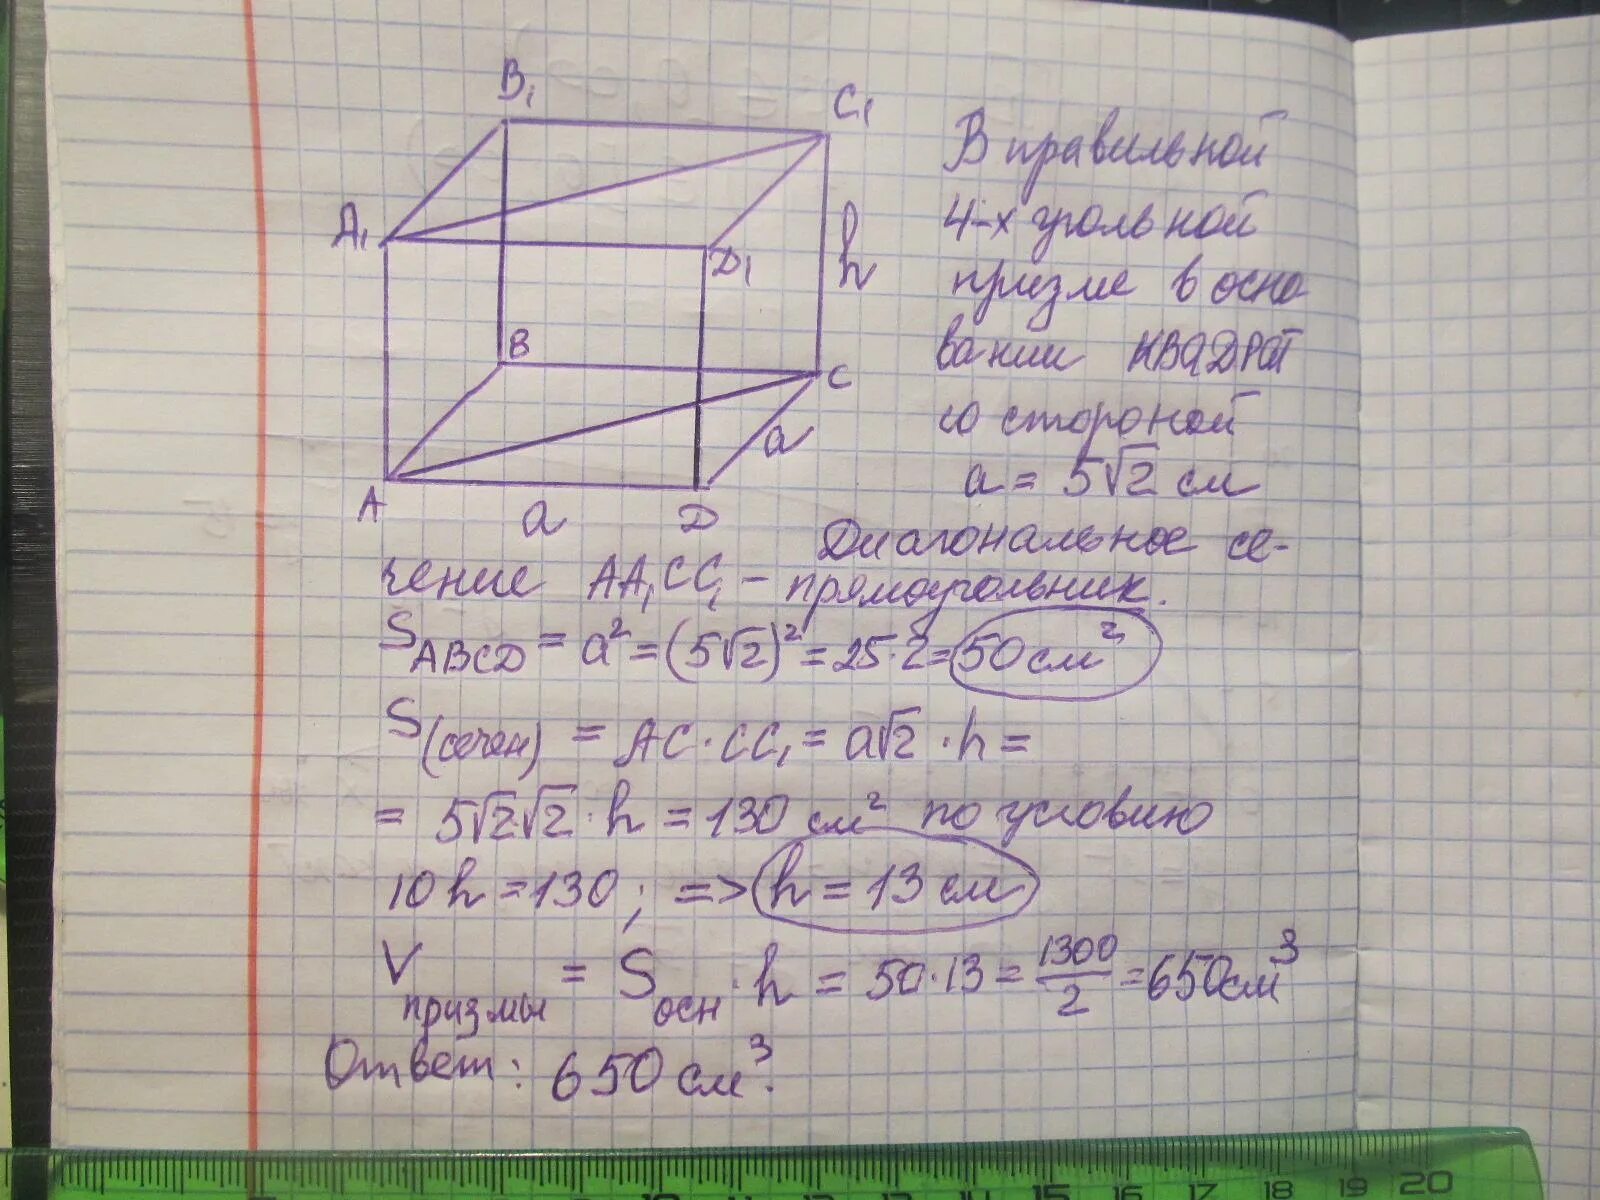 B₁
C₁
A₁
D₁
h
B
C
a
A
a
D
В правильной
4-х угольной
призме в осно
вании КВАДРАТ
со стороной
a = 5√2 см
Диагональное се-
чение AA₁CC₁ – прямоугольник.
S ABCD = a² = (5√2)² = 25·2 = 50 см²
S (сечен) = AC · CC₁ = a√2 · h =
= 5√2√2 · h = 130 см² по условию
10h = 130; => h = 13 см
V призмы = S осн · h = 50·13 = 1300/2 = 650 см³
Ответ: 650 см³.
10 11 12 13 14 15 16 17 18 19 20